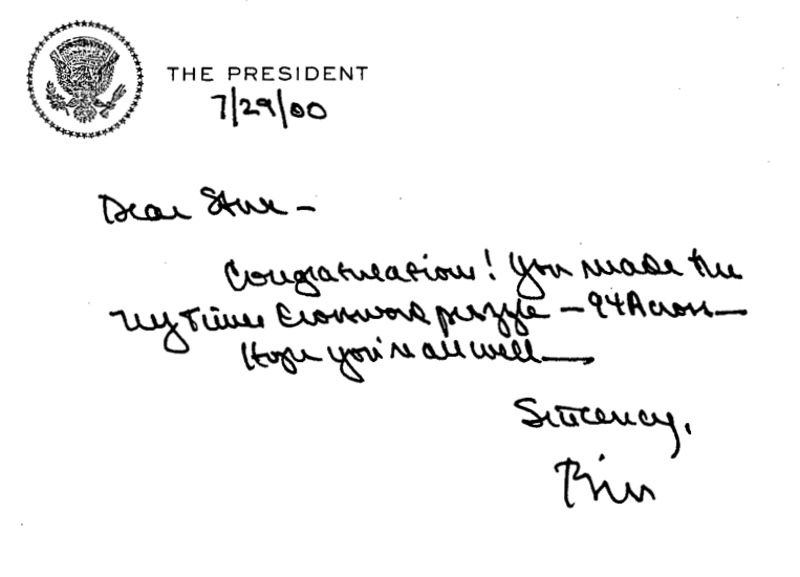 THE PRESIDENT
7/29/00
Dear Steve —
Congratulations! You made the
NY Times Crossword puzzle — 94 Across —
Hope you're all well —
Sincerely,
Bill